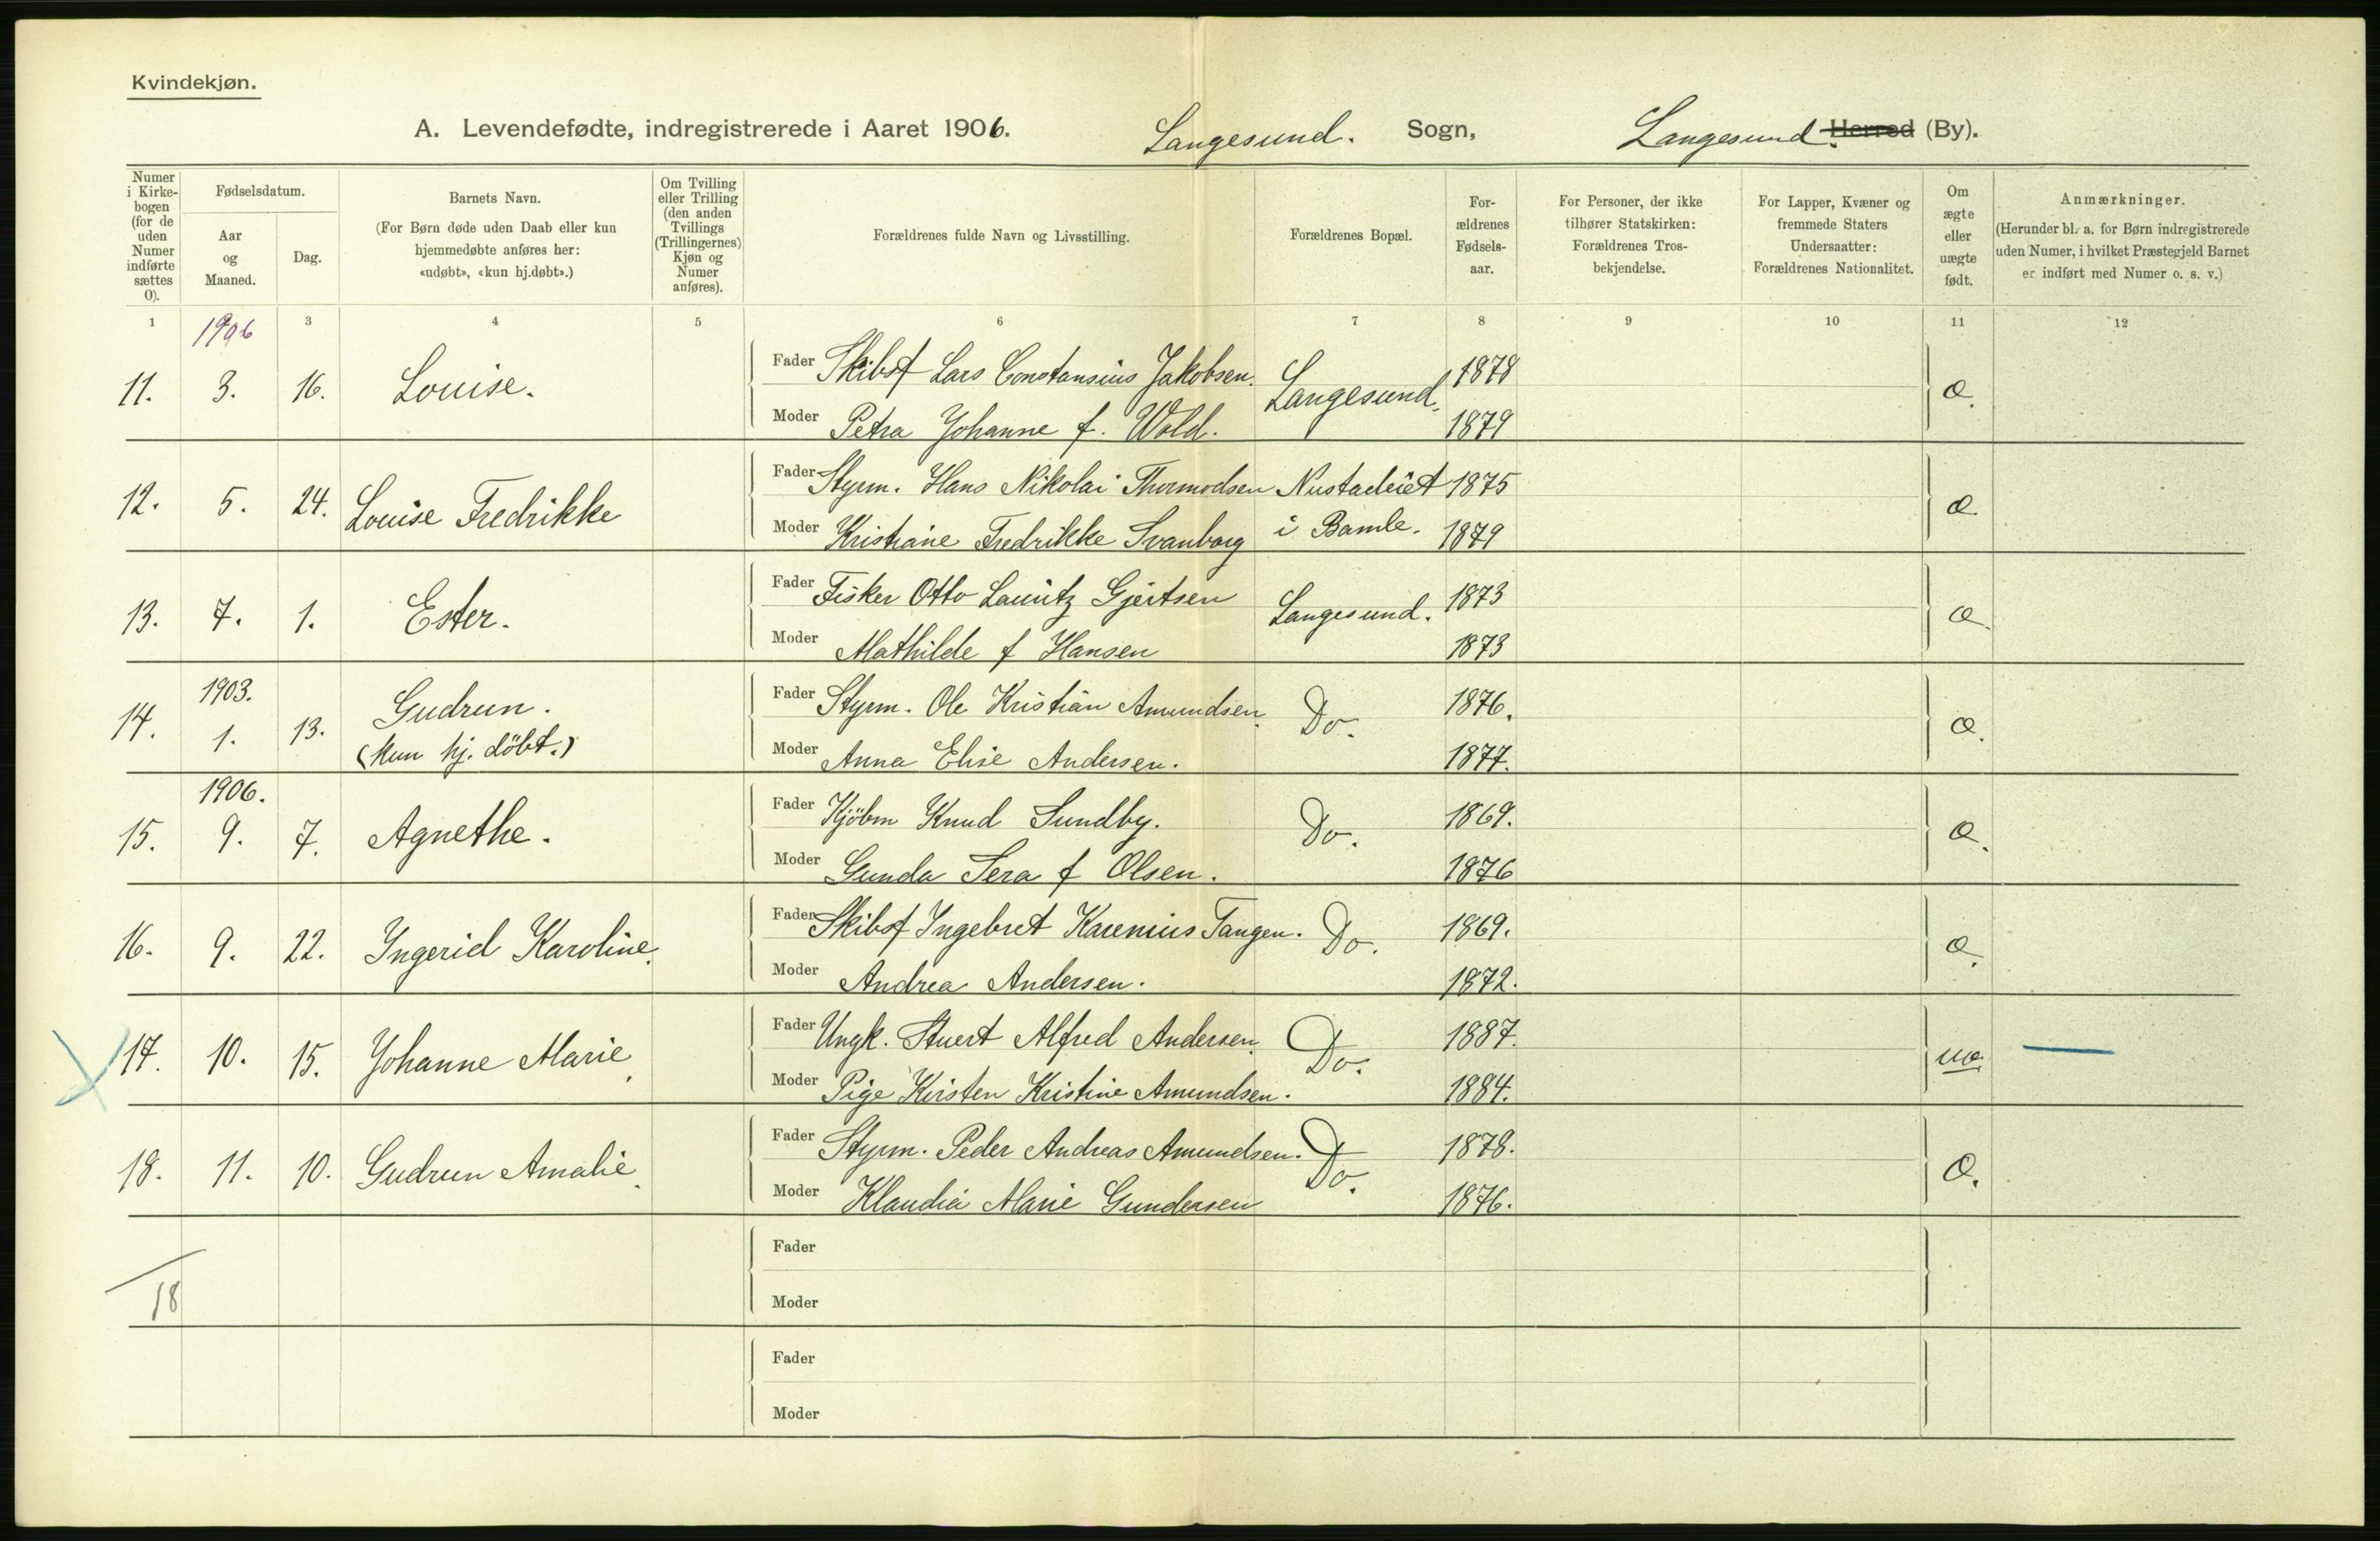 Kvindekjøn.
A. Levendefødte, indregistrerede i Aaret 1906. Langesund. Sogn, Langesund. Herred (By).
Numer i Kirkebogen (for de uden Numer indførte sættes 0).
Fødselsdatum.
Aar og Maaned.
Dag.
Barnets Navn.
(For Børn døde uden Daab eller kun hjemmedøbte anføres her: «udøbt», «kun hj.døbt».)
Om Tvilling eller Trilling (den anden Tvillings (Trillingernes) Kjøn og Numer anføres).
Forældrenes fulde Navn og Livsstilling.
Forældrenes Bopæl.
For-ældrenes Fødsels-aar.
For Personer, der ikke tilhører Statskirken: Forældrenes Tros-bekjendelse.
For Lapper, Kvæner og fremmede Staters Undersaatter: Forældrenes Nationalitet.
Om ægte eller uægte født.
Anmærkninger.
(Herunder bl. a. for Børn indregistrerede uden Numer, i hvilket Præstegjeld Barnet er indført med Numer o. s. v.)
1 1906 3 4 5 6 7 8 9 10 11 12
11. 3. 16. Louise. Fader Skibsf Lars Constansius Jakobsen. Langesund. 1878 æ.
Moder Petra Johanne f. Wold. 1879
12. 5. 24. Louise Fredrikke Fader Styrm. Hans Nikolai Thormodsen Nustadeiet 1875 æ.
Moder Kristiane Fredrikke Svanborg i Bamle. 1879
13. 7. 1. Ester. Fader Fisker Otto Lauritz Gjertsen Langesund. 1873 æ.
Moder Mathilde f Hansen 1873
1903.
14. 1. 13. Gudrun. Fader Styrm. Ole Kristian Amundsen. Do. 1876. æ.
(kun hj. döbt.) Moder Anna Elise Andersen. 1877.
1906.
15. 9. 7. Agnethe. Fader Kjöbm Knud Sundby. Do. 1869. æ.
Moder Gunda Sera f Olsen. 1876
16. 9. 22. Ingerid Karoline. Fader Skibsf Ingebret Karenius Tangen. Do. 1869. æ.
Moder Andrea Andersen. 1872.
17. 10. 15. Johanne Marie. Fader Ungk. Stuert Alfred Andersen. Do. 1887. uæ.
Moder Pige Kirsten Kristine Amundsen. 1884.
18. 11. 10. Gudrun Amalie. Fader Styrm. Peder Andreas Amundsen. Do. 1878. æ.
Moder Klaudia Marie Gundersen 1876.
Fader
18
Moder
Fader
Moder